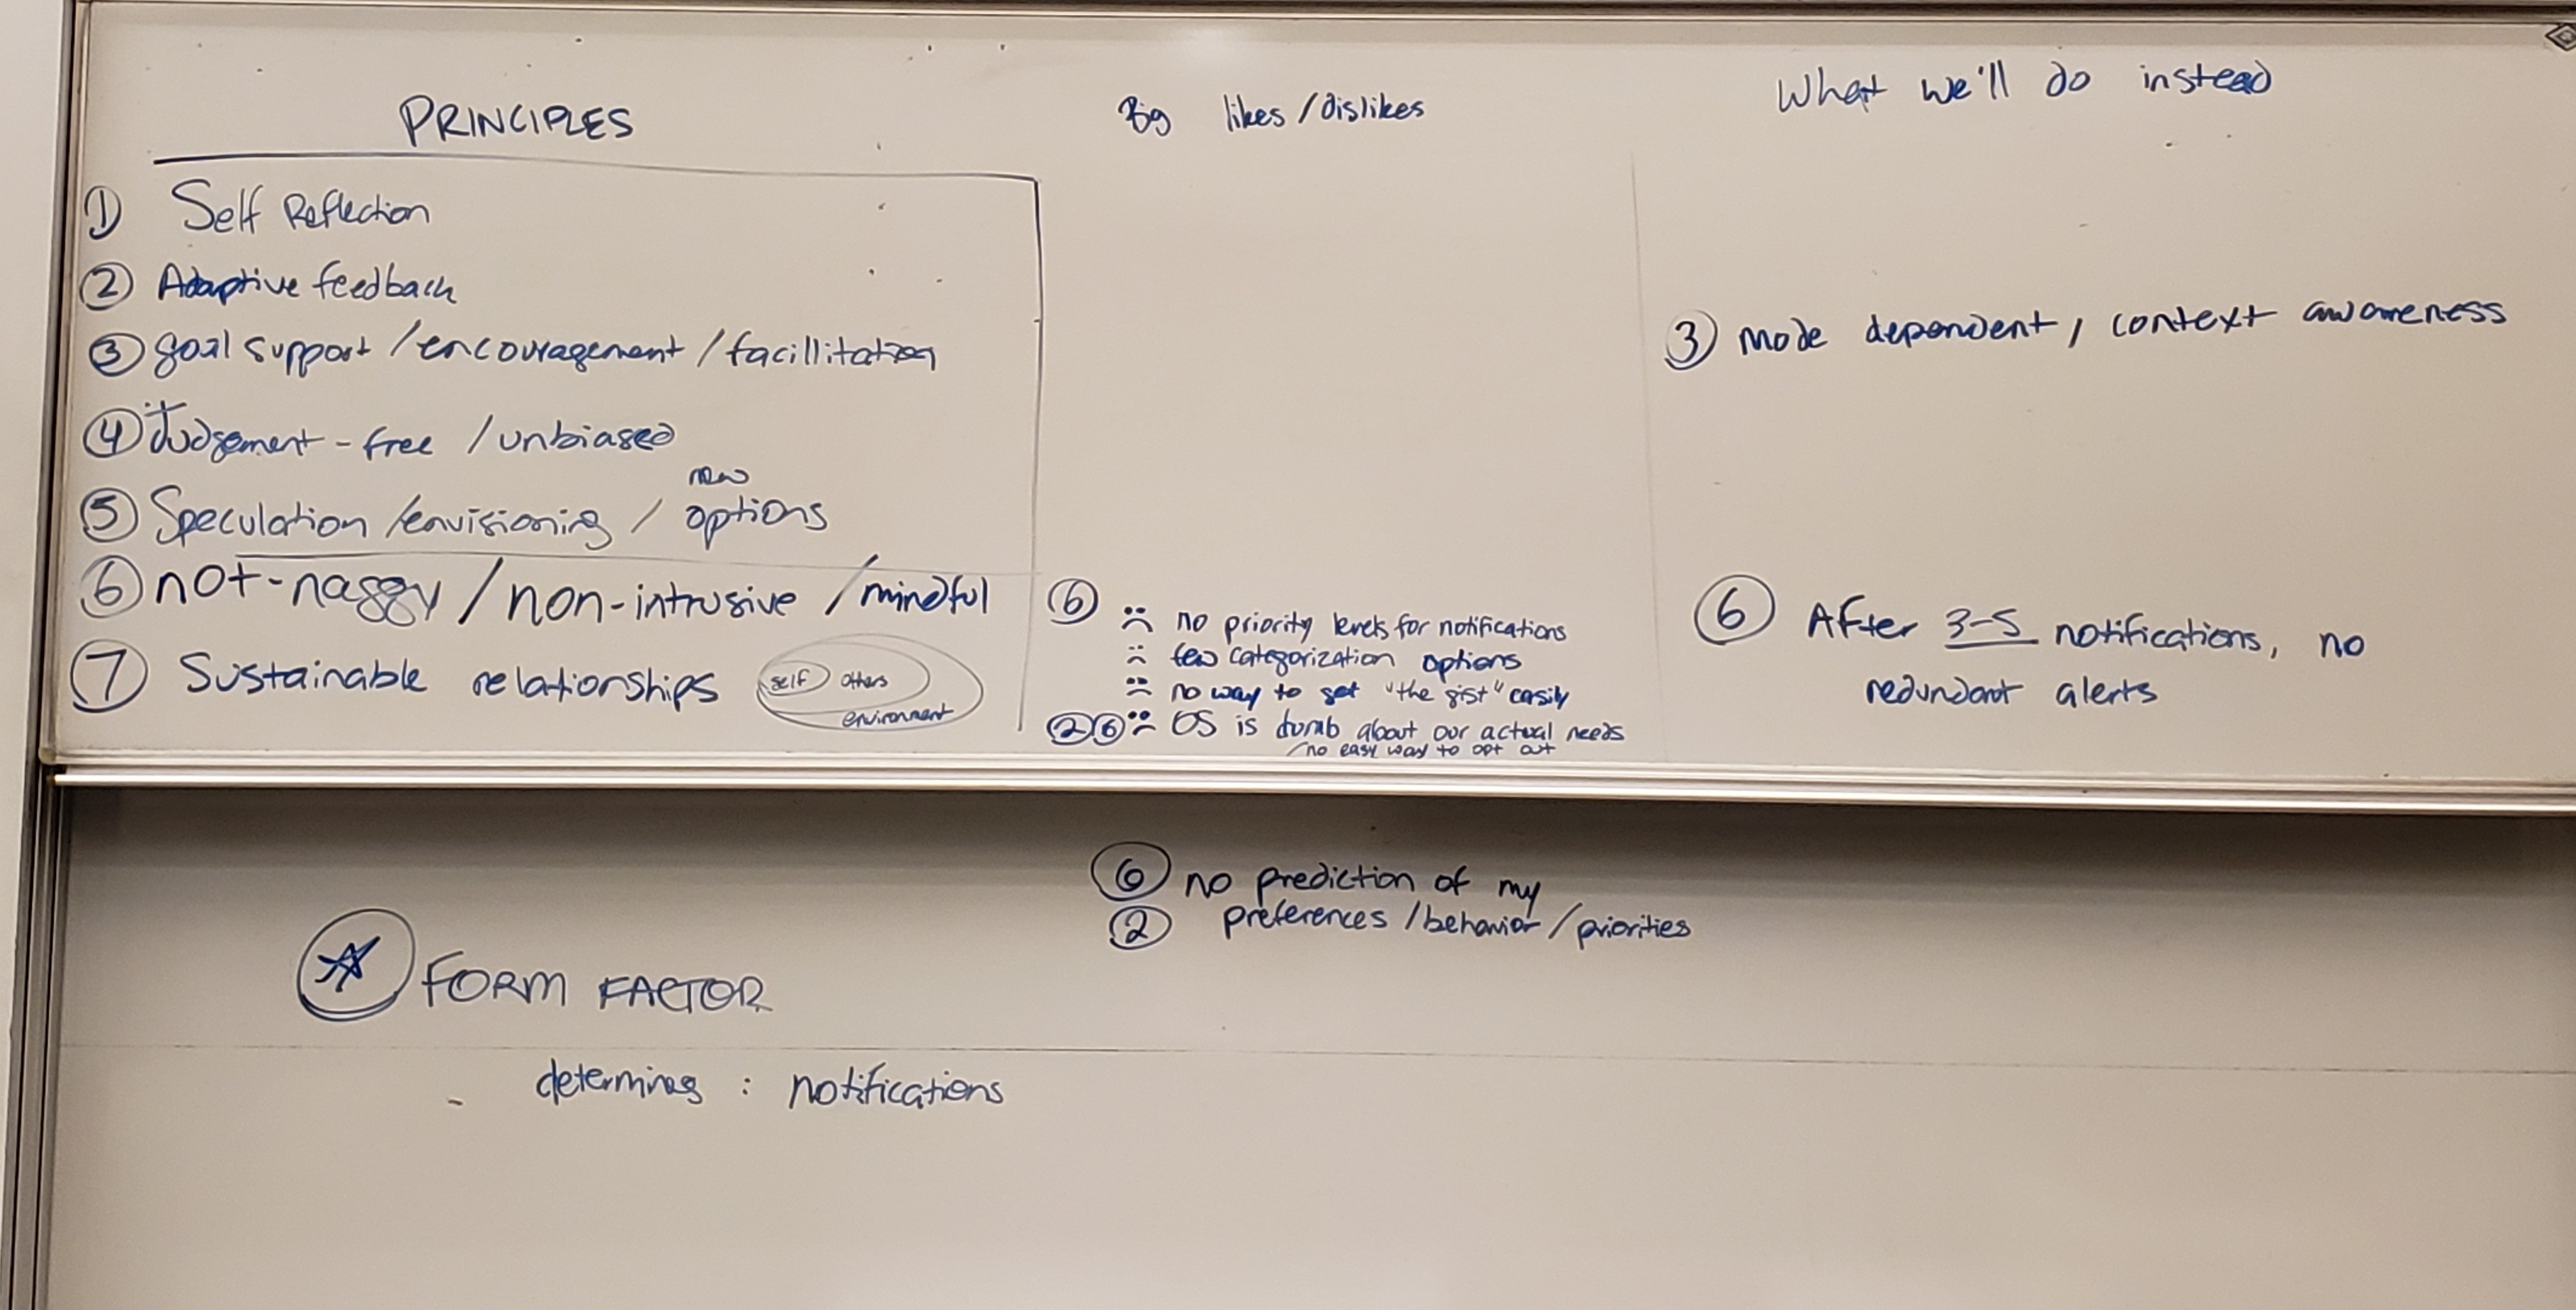 PRINCIPLES
① Self Reflection
② Adaptive feedback
③ goal support / encouragement / facillitation
④ Judgement-free / unbiased
new
⑤ Speculation / envisioning / options
⑥ not-naggy / non-intrusive / mindful
⑦ Sustainable relationships
self others
environment
Big likes / dislikes
⑥ no priority levels for notifications
few categorization options
no way to get "the gist" easily
② ⑥ OS is dumb about our actual needs
/ no easy way to opt out
⑥ no prediction of my
② preferences / behavior / priorities
What we'll do instead
③ mode dependent, context awareness
⑥ After 3-5 notifications, no
redundant alerts
FORM FACTOR
determines : notifications